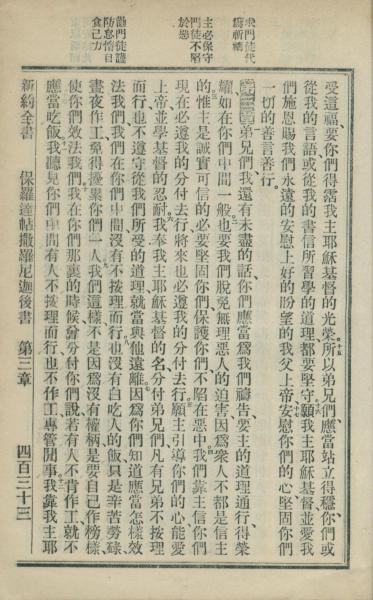 求門徒代
爲祈禱
主必保守
門徒不陷
於惡
勸門徒謹
防怠惰自
食己力
受這福要你們得着我主耶穌基督的光榮所以弟兄們應當站立得穩你們或
從我的言語或從我的書信所習學的道理都要堅守願我主耶穌基督並愛我
們施恩賜我們永遠的安慰上好的盼望的我父上帝安慰你們的心堅固你們
一切的善言善行
弟兄們我還有未盡的話你們應當爲我們禱告要主的道理通行得榮
耀如在你們中間一般也要我們脫免無理惡人的迫害因爲衆人不都是信主
的惟主是誠實可信的必要堅固你們保護你們不陷在惡中我們靠主信你們
現在必遵我的分付去行將來也必遵我的分付去行願主引導你們的心能愛
上帝並學基督的忍耐我奉我主耶穌基督的名分付弟兄們凡有兄弟不按理
而行也不遵守從我們所受的道理就當與他遠離因爲你們知道應當怎樣效
法我們我們在你們中間沒有不按理而行也沒有白吃人的飯只是辛苦勞碌
晝夜作工免得擾累你們一人我們這樣不是因爲沒有權柄是要自己作榜樣
使你們效法我們我在你們那裏的時候曾分付你們說若有人不肯作工就不
應當吃飯我聽見你們中間有人不按理而行也不作工專管閒事我靠我主耶
新約全書 保羅達帖撒羅尼迦後書 第三章 四百三十三